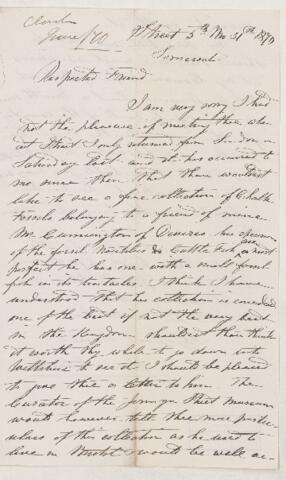 Clark
June/70
Street 5th Mo 31st 1870
Somerset
Respected Friend
I am very sorry I had
not the pleasure of meeting thee when
at Street I only returned from London on
Saturday last and it has occurred to
me since then that thou wouldst
like to see a fine collection of Chalk
Fossils belonging to a friend of mine
Mr Cunnington of Devizes his specimens
of the fossil Nautilus & Cuttle Fish are most
perfect he has one with a small fossil
fish in its tentacles. I think I have
understood that his collection is considered
one of the best if not the very best
in the Kingdom. Shouldst thou think
it worth thy while to go down into
Wiltshire to see it I should be pleased
to give thee a letter to him. The
Curator of the Jermyn Street museum
would however tell thee more particu-
lars of this collection as he used to
live in Bristol & would be well ac-